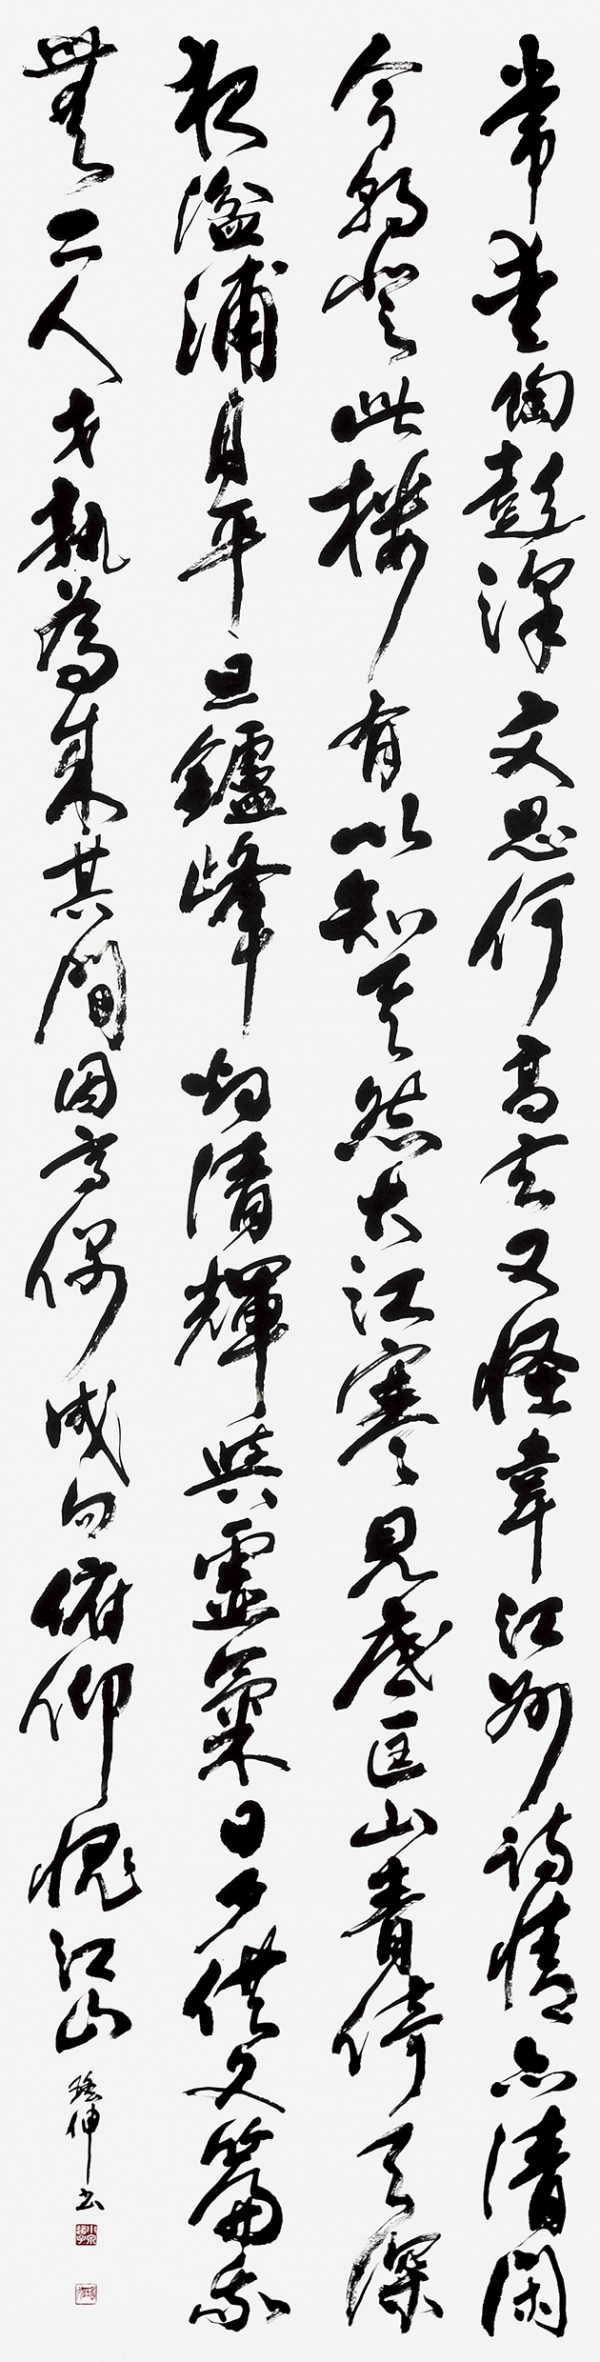 常愛陶彭澤文思何高玄又怪韋江州詩情亦清閑
今朝登此樓有以知其然大江寒見底匡山青倚天深
夜湓浦月平旦鑪峰烟清輝與靈氣日夕供文篇我
無二人才孰為來其間因高偶成句俯仰愧江山
書